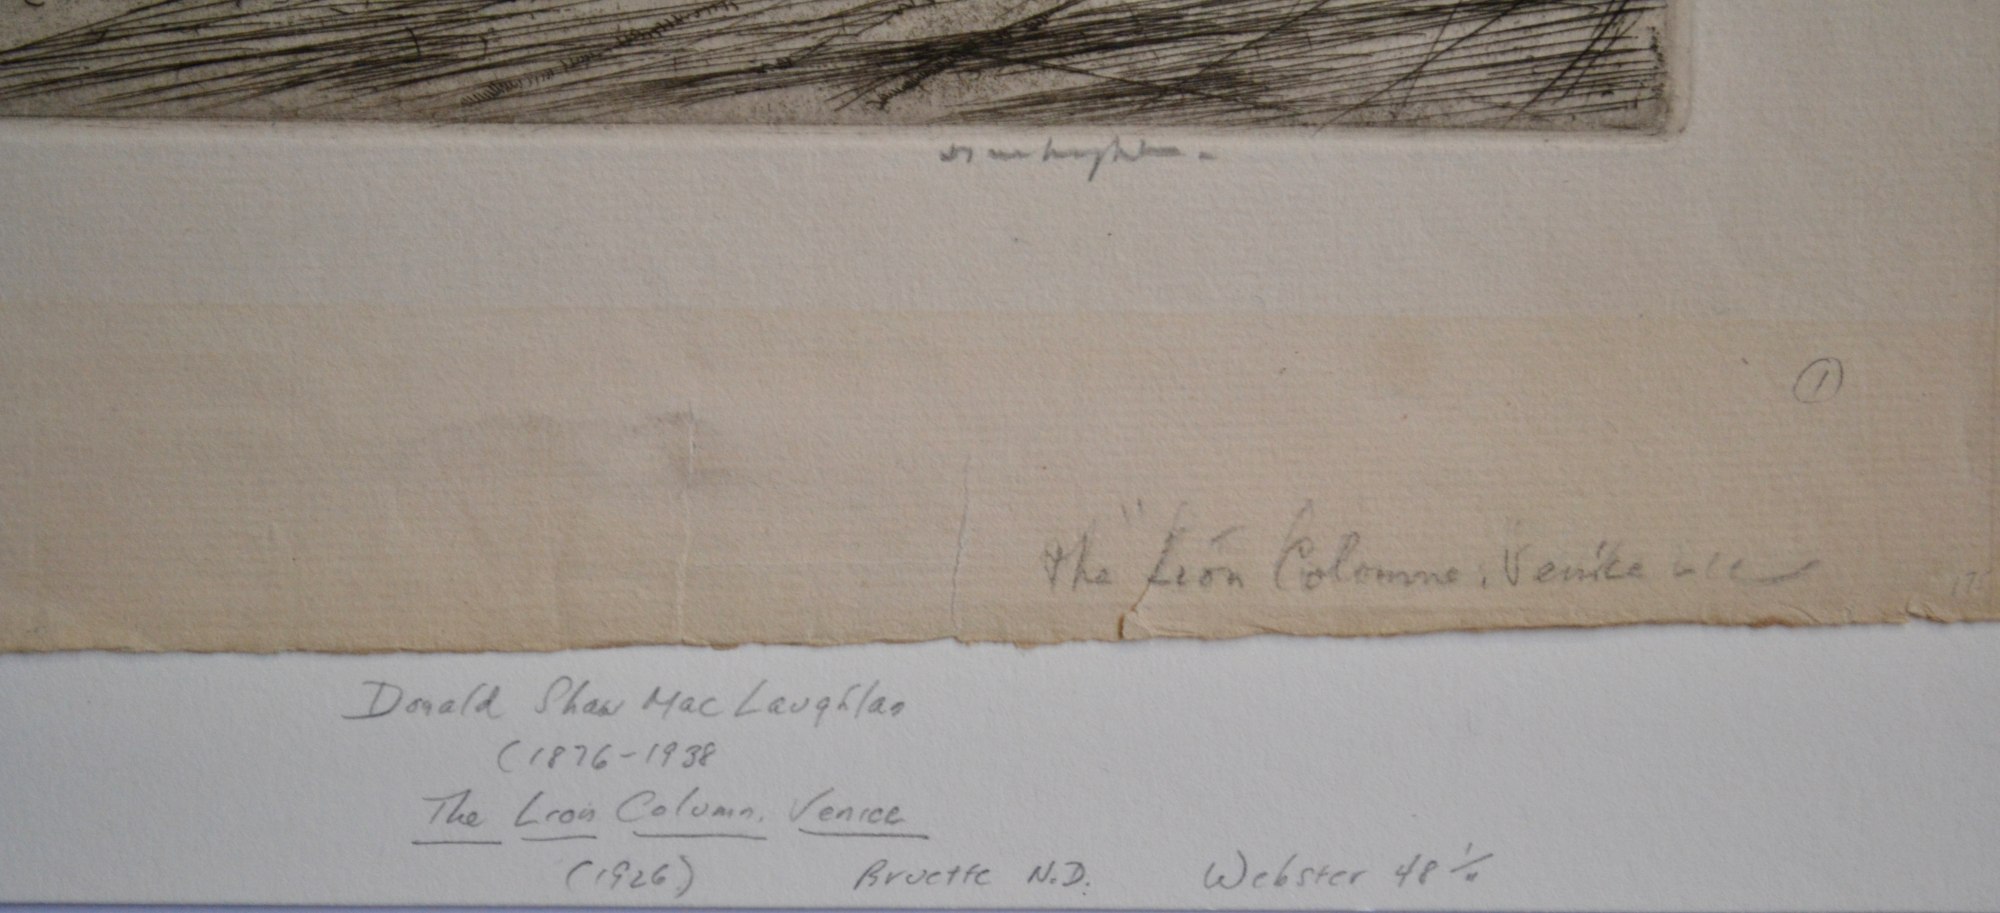 ①
The "Lion Colomne, Venice
Donald Shaw MacLaughlan
(1876-1938
The Lion Column, Venice
(1926) Bruette N.D. Webster 48